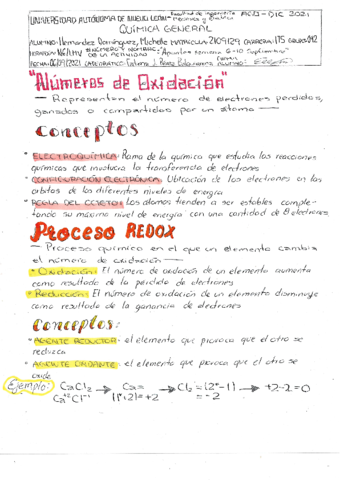 UNIVERSIDAD AUTÓNOMA DE NUEVO LEÓN
QUÍMICA GENERAL
ALUMNO: Hernandez Dominguez, Michelle MATRICULA: 2109129
"Números de Oxidación"
— Representan el número de electrones perdidos,
ganados o compartidos por un átomo —
Conceptos
* ELECTROQUÍMICA: Rama de la química que estudia las reacciones
químicas que involucra la transferencia de electrones
* CONFIGURACIÓN ELECTRÓNICA: Ubicación de los electrones en los
orbitas de los diferentes niveles de energía
* REGLA DEL OCTETO: Los átomos tienden a ser estables comple-
tando su máximo nivel de energía con una cantidad de 8 electrones
Proceso REDOX
— Proceso químico en el que un elemento cambia
el número de oxidación —
* Oxidación: El número de oxidación de un elemento aumenta
como resultado de la perdida de electrones
* Reducción: El número de oxidación de un elemento disminuye
como resultado de la ganancia de electrones
Conceptos:
* AGENTE REDUCTOR: el elemento que provoca que el otro se
reduzca
* AGENTE OXIDANTE: el elemento que provoca que el otro se
oxide
Ejemplo: CaCl₂ → Ca= → Cl₂ = (2*-1) → +2-2=0
Ca⁺²Cl⁻¹ (1*+2)=+2 = -2